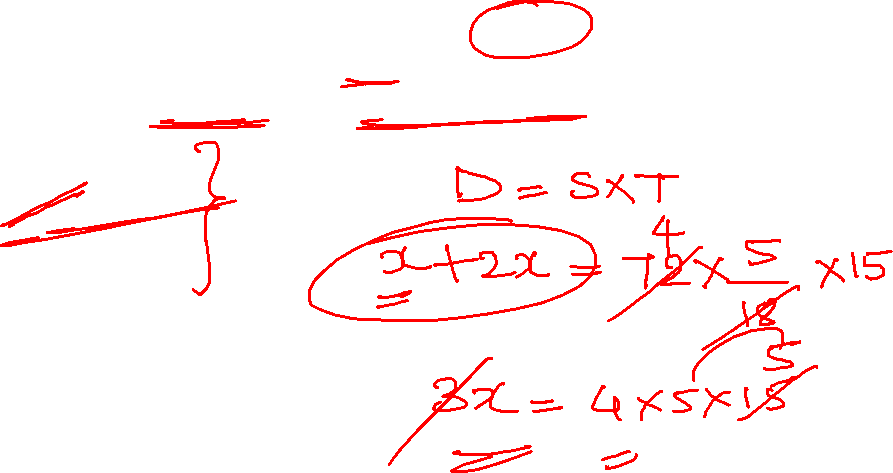 D = S×T
4
x+2x = 72 × 5/18 × 15
5
3x = 4×5×15